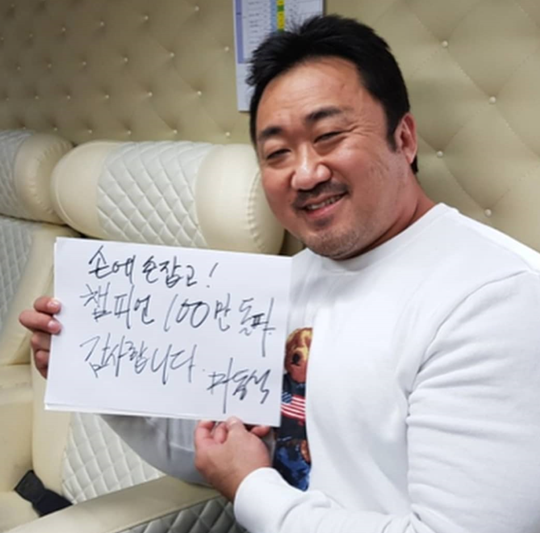 손에 손잡고!
챔피언 100만 돌파.
감사합니다. 마동석